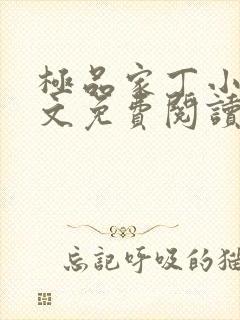 極品家丁小
文免費閱讀
忘記呼吸的猫